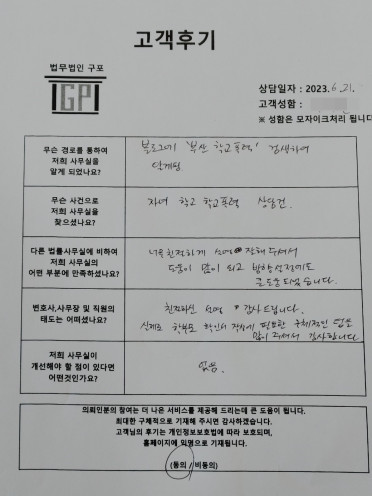 고객후기
법무법인 구포
GP
상담일자 : 2023. 6. 21.
고객성함 :
※ 성함은 모자이크처리 됩니다
무슨 경로를 통하여
저희 사무실을
알게 되었나요?
블로그에 '부산 학교폭력' 검색하여
알게됨
무슨 사건으로
저희 사무실을
찾으셨나요?
자녀 학교 학교폭력 상담건.
다른 법률사무실에 비하여
저희 사무실의
어떤 부분에 만족하셨나요?
너무 친절하게 설명 잘해 주셔서
도움이 많이 되고 방향설정에도
큰 도움 되었습니다.
변호사,사무장 및 직원의
태도는 어떠셨나요?
친절하신 설명 감사드립니다.
실제로 학부모 확인서 작성에 필요한 구체적인 말씀
많이 주셔서 감사합니다
저희 사무실이
개선해야 할 점이 있다면
어떤것인가요?
없음.
의뢰인분의 참여는 더 나은 서비스를 제공해 드리는데 큰 도움이 됩니다.
최대한 구체적으로 기재해 주시면 감사하겠습니다.
고객님의 후기는 개인정보보호법에 따라 보호되며,
홈페이지에 익명으로 기재됩니다.
(동의 / 비동의)